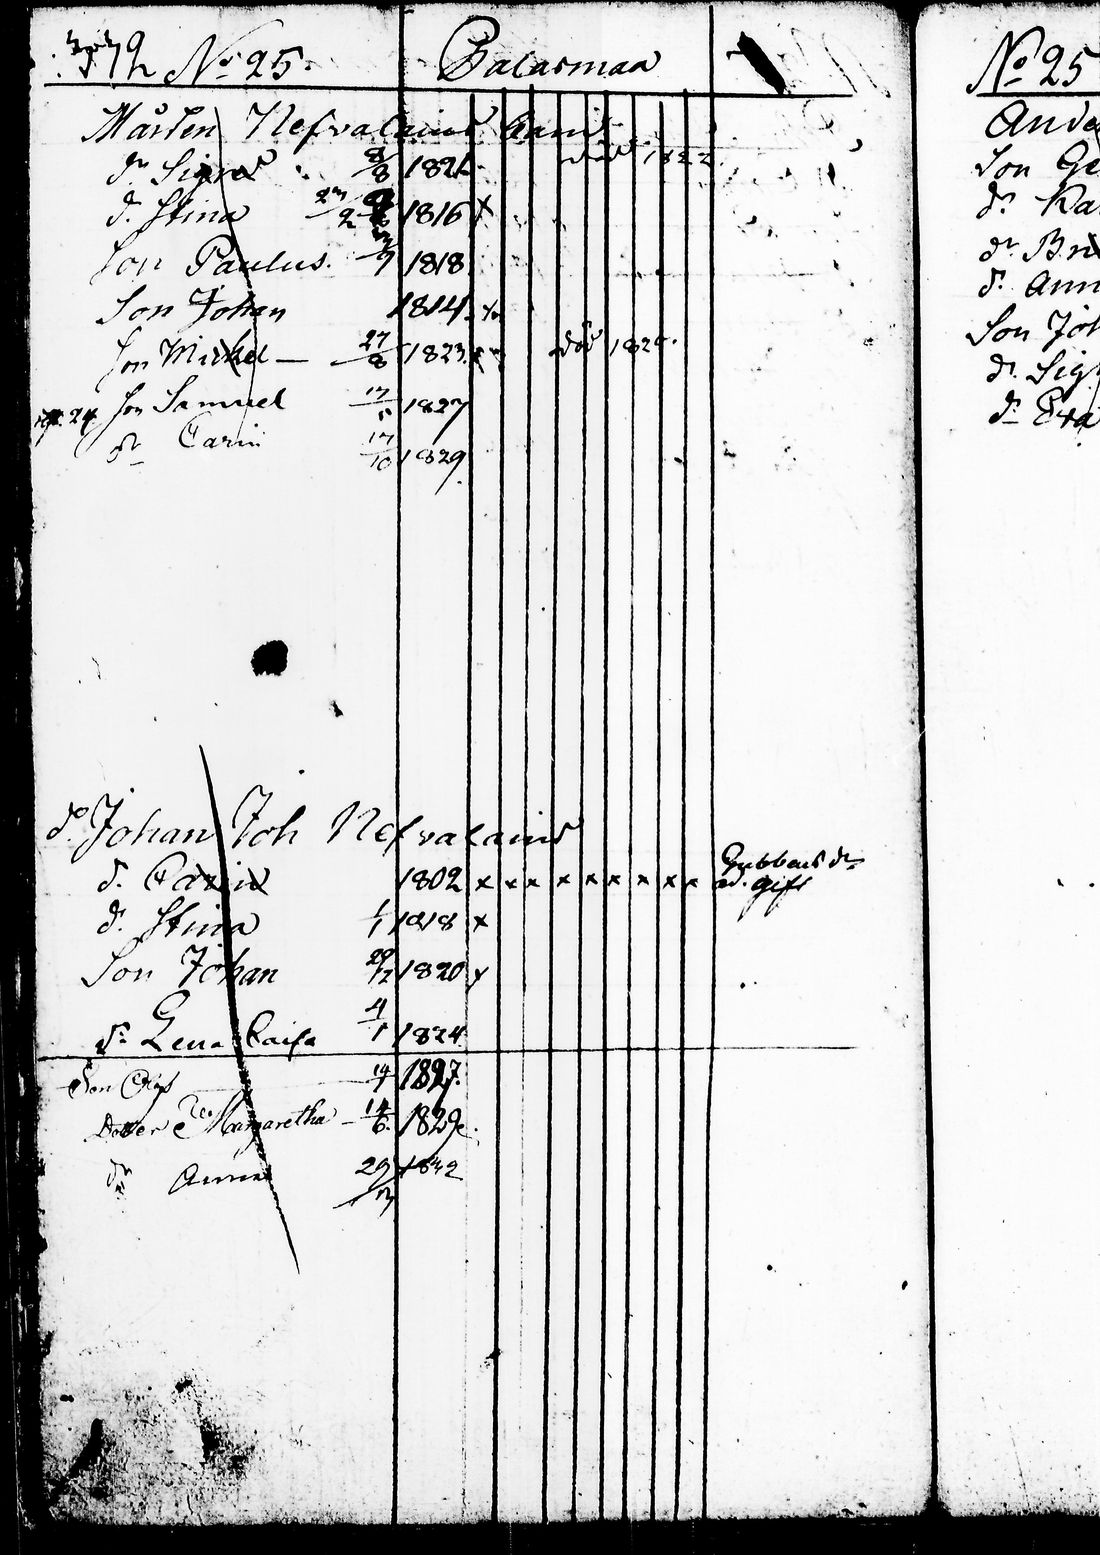 372 No 25. Palasmaa
Mårten Nefvalains barn
dr Signe 8/8 1821 död 1822
d. Stina 2 1816 x
Son Paulus. 1818
Son Johan 1814. x
Son Mickel — 27/8 1823. x död 182
Son Samuel 17/5 1827
dr Carin 17/10 1829
do Johan Joh Nefvalains
d. Carin 1802 x x x x x x x x x Gubbens dr
gift
dr Stina 1/1 1818 x
Son Johan 29/12 1820 x
dr Lena Caisa 4/1 1824
Son Olof 14/7 1827.
Dotter Margaretha — 14/6. 1829.
dr Anna 29/3 1832
No 25
Ande
Son Ge
dr Ka
dr Bri
dr Ann
Son Joh
dr Sig
dr Eva